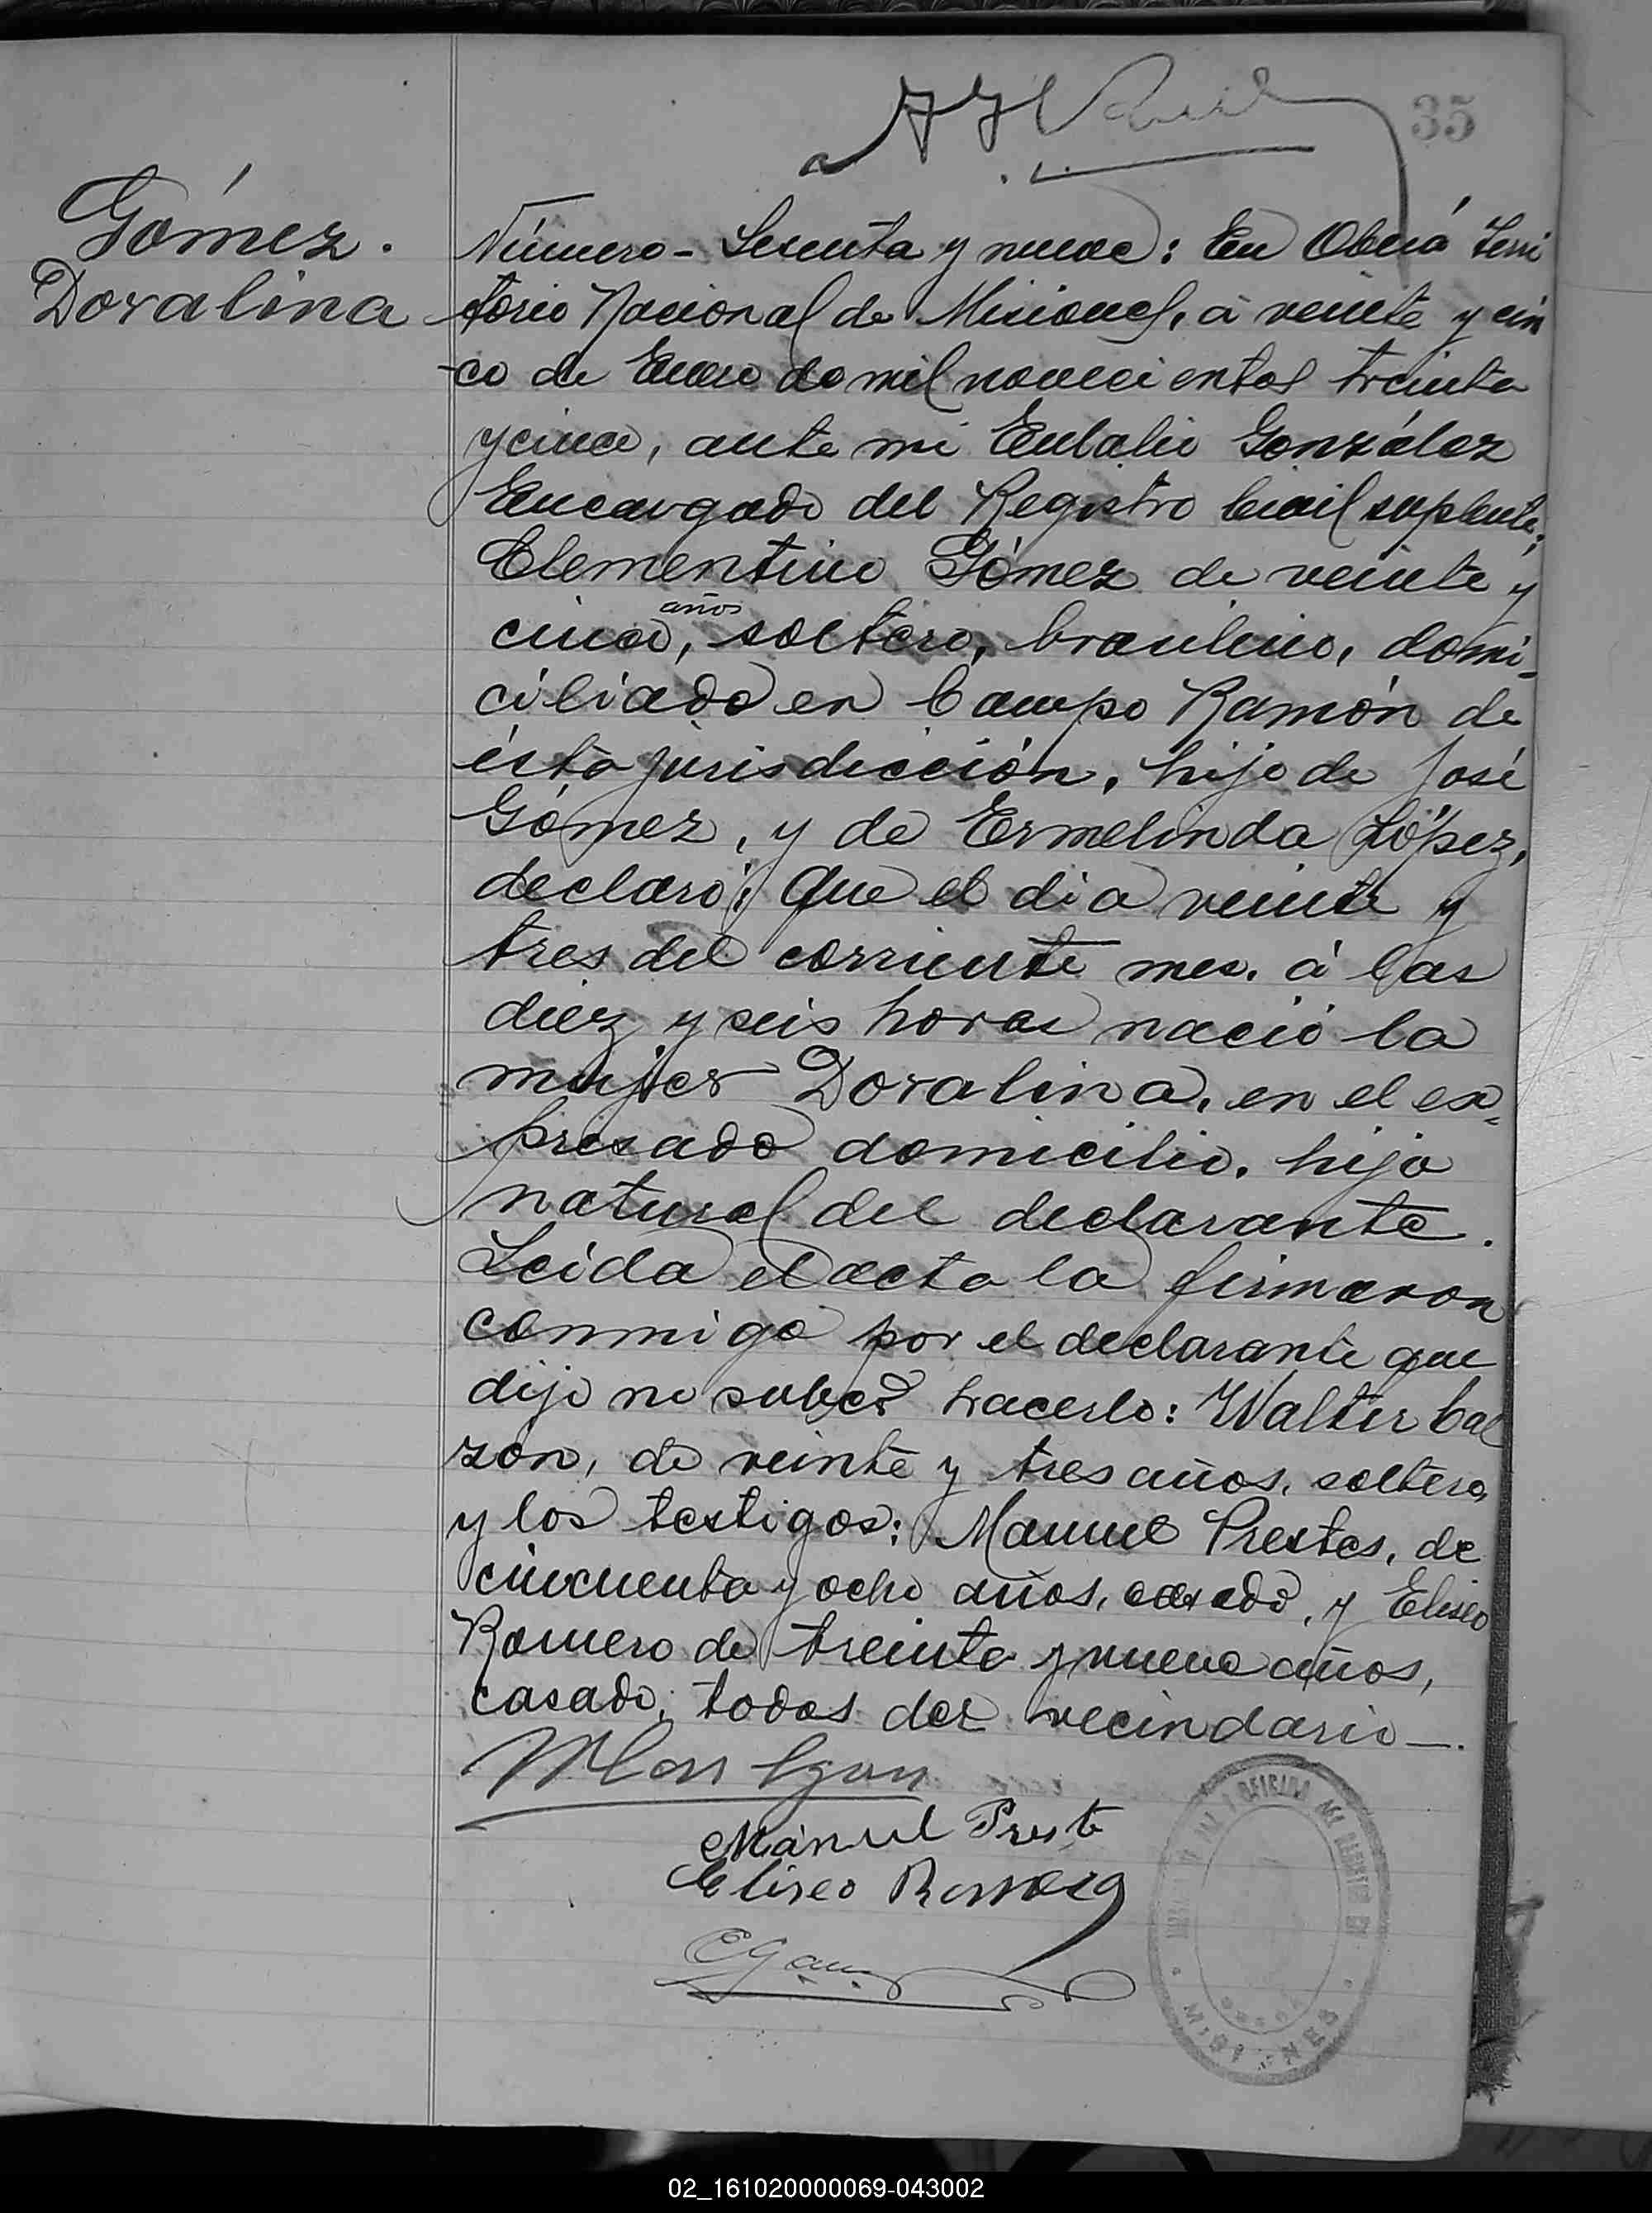 35
Gómez.
Doralina
Número - Sesenta y nueve: En Oberá Terri
torio Nacional de Misiones, á veinte y cin
-co de Enero de mil novecientos treinta
y cinco, ante mi Eulalio González
Encargado del Registro Civil suplente,
Clementino Gómez de veinte y
años
cinco, soltero, brasilero, domi-
ciliado en Campo Ramón de
ésta jurisdicción, hijo de José
Gómez, y de Ermelinda López,
declaró: Que el dia veinte y
tres del corriente mes. á las
diez y seis horas nació la
mujer Doralina, en el ex=
presado domicilio. hija
natural del declarante.
Leida el acta la firmaron
conmigo por el declarante que
dijo no saber hacerlo: Walter Cal
zon, de veinte y tres años, soltero,
y los testigos: Manuel Prestes, de
cincuenta y ocho años, casado, y Eliseo
Romero de treinta y nueve años,
casado, todos del vecindario —.
Manuel Preste
Eliseo Romero
MISIONES
02_161020000069-043002